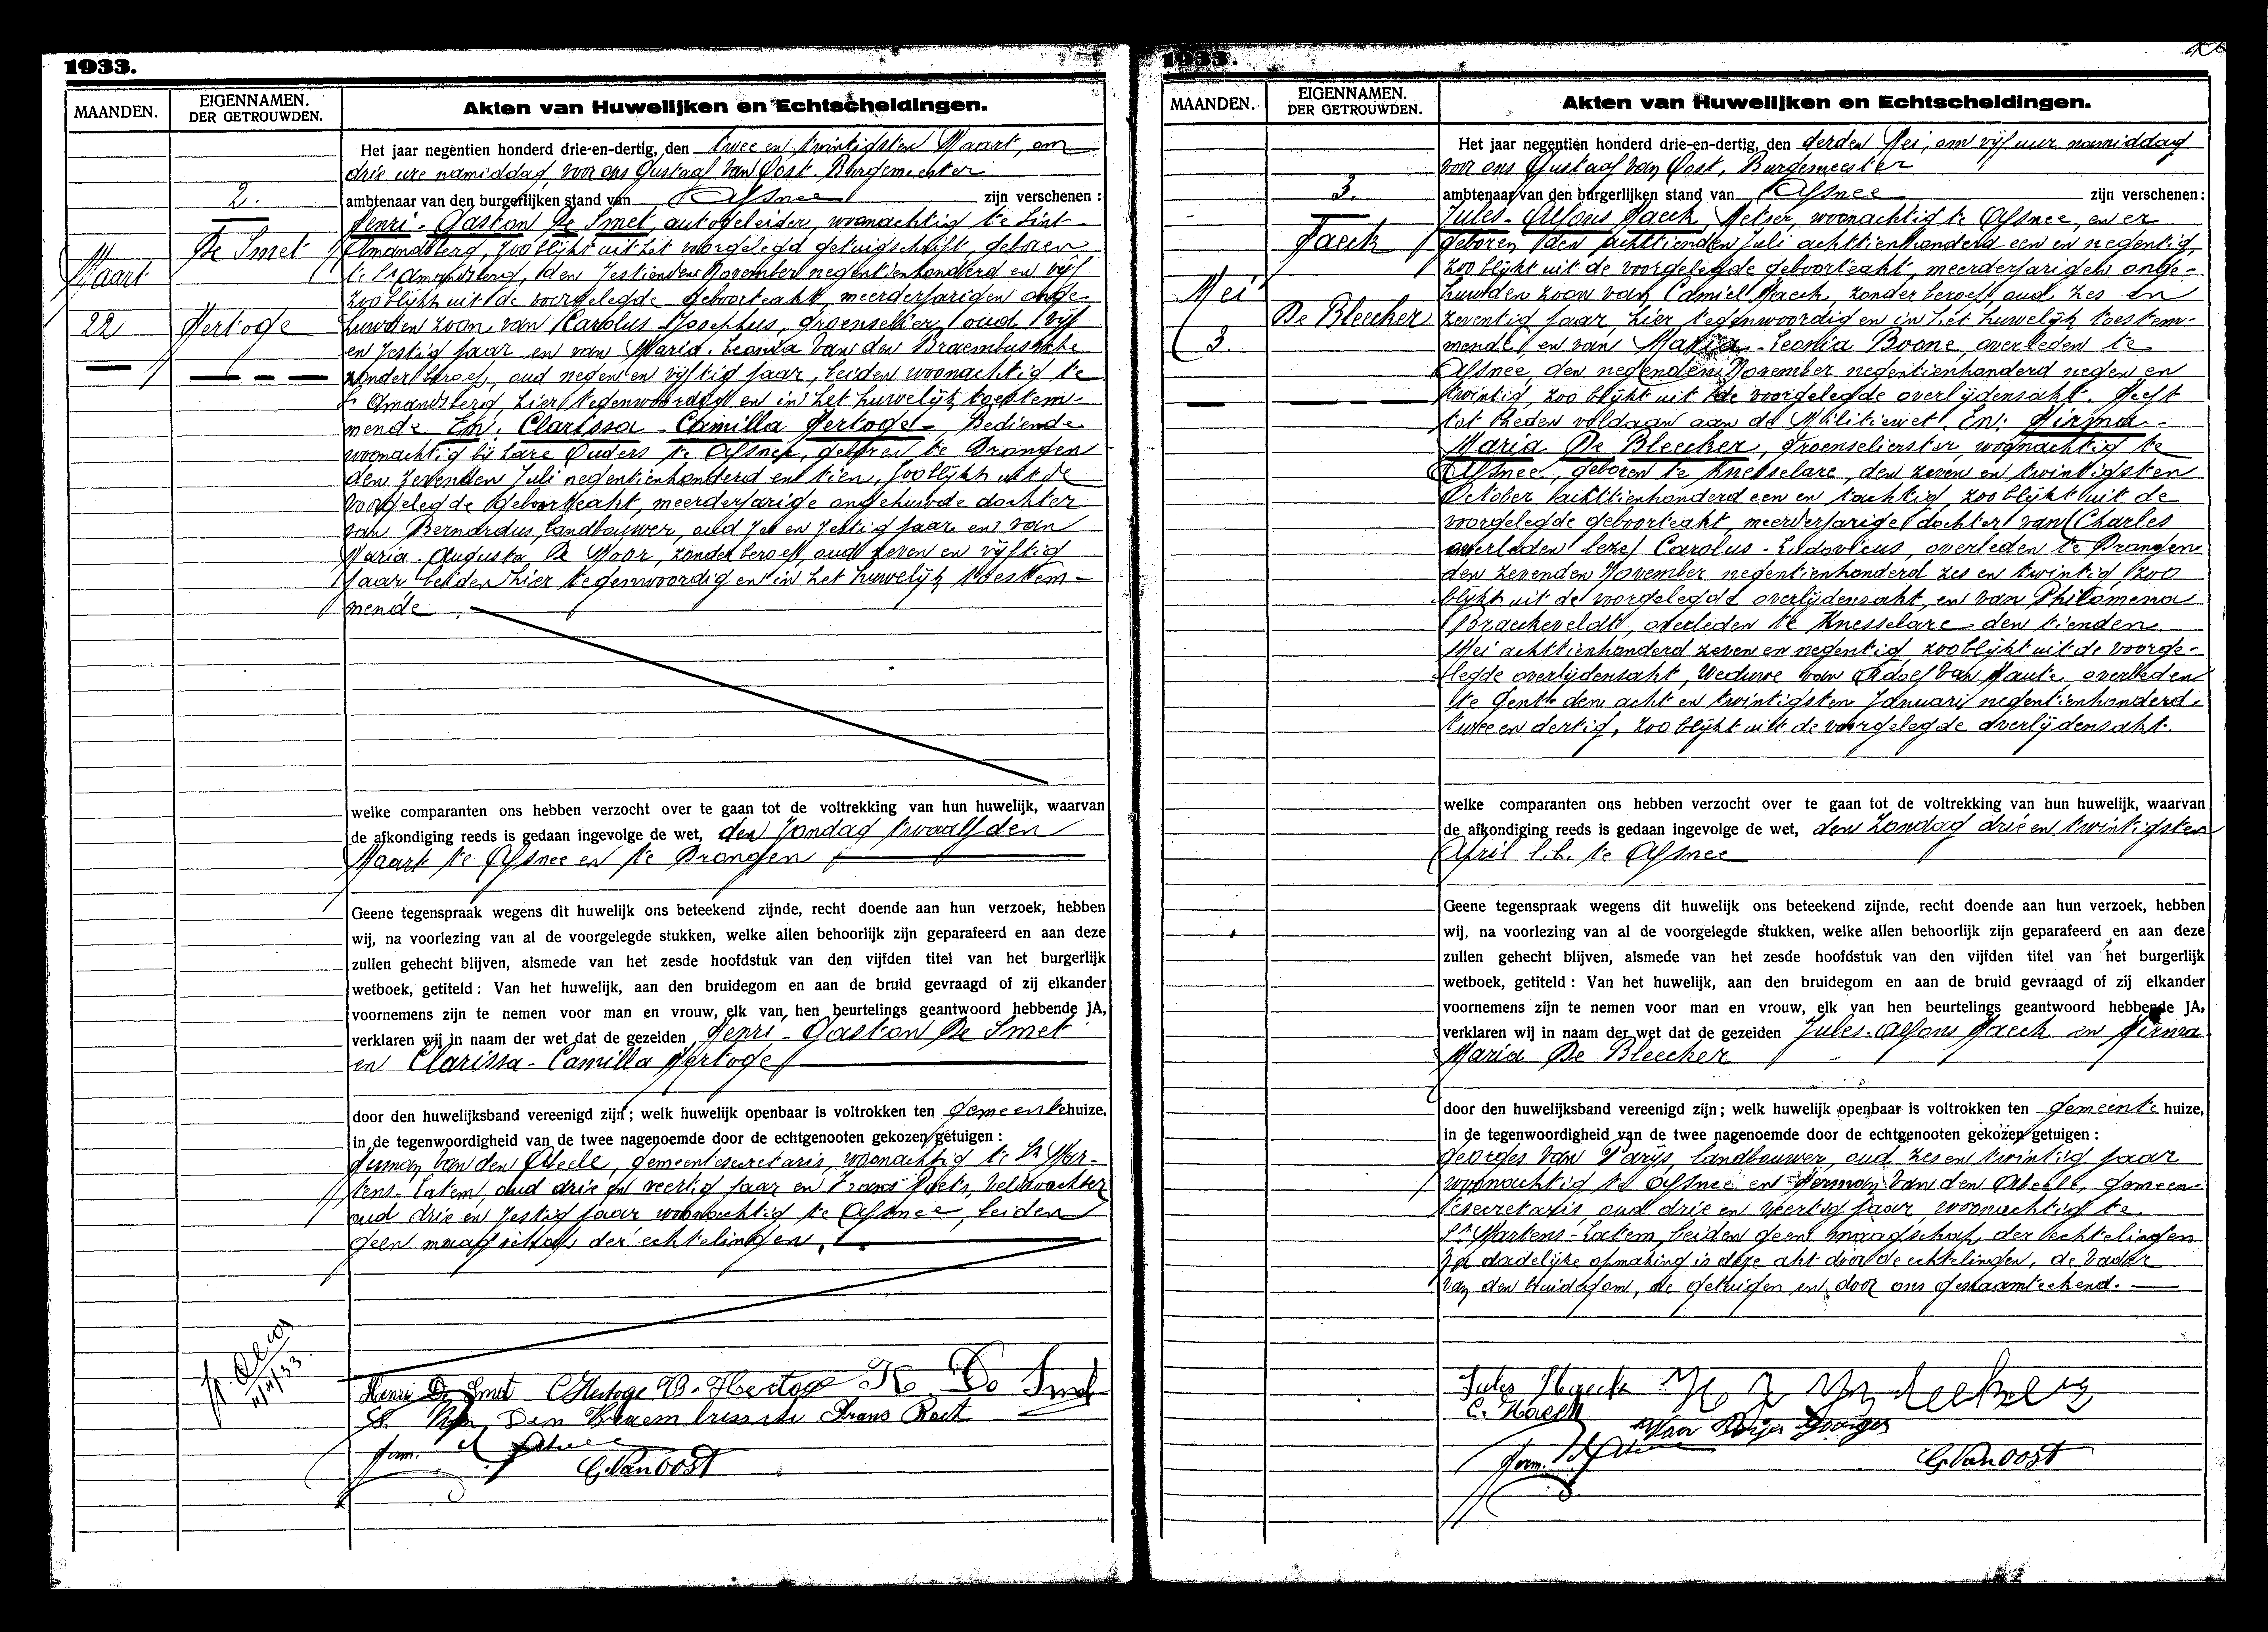 1933.
MAANDEN.
EIGENNAMEN.
DER GETROUWDEN.
Akten van Huwelijken en Echtscheidingen.
2.
De Smet
Maart
22
Hertoge
Het jaar negentien honderd drie-en-dertig, den twee en twintigsten Maart, om
drie ure namiddag, voor ons Gustaaf Van Oost, Burgemeester
ambtenaar van den burgerlijken stand van Afsnee zijn verschenen :
Henri-Gaston De Smet, autogeleider, woonachtig te Sint
Amandsberg, zoo blijkt uit het voorgelegd getuigschrift, geboren
te St Amandsberg, den zestienden November negentienhonderd en vijf
zoo blijkt uit de voorgelegde geboorteakt, meerderjarigen onge-
huwden zoon van Carolus Josephus, groenselier, oud vijf
en zestig jaar en van Maria-Leonia Van den Braembussche
zonder beroep, oud negen en vijftig jaar, beiden woonachtig te
St Amandsberg, hier tegenwoordig en in het huwelijk toestem
mende En: Clarissa-Camilla Hertoge, Bediende
woonachtig bij hare Ouders te Afsnee, geboren te Drongen
den zevenden Juli negentienhonderd en tien, zoo blijkt uit de
voorgelegde geboorteakt, meerderjarige ongehuwde dochter
van Bernardus, landbouwer, oud zes en zestig jaar en van
Maria-Augusta De Moor, zonder beroep, oud zeven en vijftig
jaar beiden hier tegenwoordig en in het huwelijk toestem-
mende
welke comparanten ons hebben verzocht over te gaan tot de voltrekking van hun huwelijk, waarvan
de afkondiging reeds is gedaan ingevolge de wet, den Zondag twaalfden
Maart te Afsnee en te Drongen
Geene tegenspraak wegens dit huwelijk ons beteekend zijnde, recht doende aan hun verzoek, hebben
wij, na voorlezing van al de voorgelegde stukken, welke allen behoorlijk zijn geparafeerd en aan deze
zullen gehecht blijven, alsmede van het zesde hoofdstuk van den vijfden titel van het burgerlijk
wetboek, getiteld : Van het huwelijk, aan den bruidegom en aan de bruid gevraagd of zij elkander
voornemens zijn te nemen voor man en vrouw, elk van hen beurtelings geantwoord hebbende JA,
verklaren wij in naam der wet dat de gezeiden Henri-Gaston De Smet
en Clarissa-Camilla Hertoge
door den huwelijksband vereenigd zijn ; welk huwelijk openbaar is voltrokken ten Gemeentehuize,
in de tegenwoordigheid van de twee nagenoemde door de echtgenooten gekozen getuigen :
Herman Van den Abeele, gemeentesecretaris, woonachtig te St Mar-
tens-Latem, oud drie en veertig jaar en Frans Roets, veldwachter
oud drie en zestig jaar woonachtig te Afsnee, beiden
geen maagschap der echtelingen.
11/4/33.
Henri De Smet C Hertoge B. Hertoge K De Smet
Van Den Braembussche Frans Roets
Herm. Abeele
G. Van Oost
1933.
MAANDEN.
EIGENNAMEN.
DER GETROUWDEN.
Akten van Huwelijken en Echtscheidingen.
3.
Haeck
Mei
De Bleecker
3.
Het jaar negentien honderd drie-en-dertig, den derden Mei, om vijf uur namiddag
voor ons Gustaaf Van Oost, Burgemeester
ambtenaar van den burgerlijken stand van Afsnee zijn verschenen :
Jules-Alfons Haeck, Metser, woonachtig te Afsnee, en er
geboren den achttienden Juli achttienhonderd een en negentig,
zoo blijkt uit de voorgelegde geboorteakt, meerderjarigen onge-
huwden zoon van Camiel Haeck, zonder beroep, oud zes en
zeventig jaar, hier tegenwoordig en in het huwelijk toestem-
mende, en van Maria-Leonia Boone, overleden te
Afsnee, den negenden November negentienhonderd negen en
twintig, zoo blijkt uit de voorgelegde overlijdensakt. Heeft
tot heden voldaan aan de Militiewet. En: Hirma-
Maria De Bleecker, Groenselierster, woonachtig te
Afsnee, geboren te Knesselare, den zeven en twintigsten
October achttienhonderd een en tachtig, zoo blijkt uit de
voorgelegde geboorteakt, meerderjarige dochter van Charles
overleden lezes Carolus-Ludovicus, overleden te Drongen
den zevenden November negentienhonderd zes en twintig, zoo
blijkt uit de voorgelegde overlijdensakt, en van Philomena
Braeckeveldt, overleden te Knesselare den tienden
Mei achttienhonderd zeven en negentig zoo blijkt uit de voorge-
legde overlijdensakt, Weduwe van Adolf Van Haute, overleden
te Gent den acht en twintigsten Januari negentienhonderd
twee en dertig, zoo blijkt uit de voorgelegde overlijdensakt.
welke comparanten ons hebben verzocht over te gaan tot de voltrekking van hun huwelijk, waarvan
de afkondiging reeds is gedaan ingevolge de wet, den Zondag drie en twintigsten
April l.l. te Afsnee
Geene tegenspraak wegens dit huwelijk ons beteekend zijnde, recht doende aan hun verzoek, hebben
wij, na voorlezing van al de voorgelegde stukken, welke allen behoorlijk zijn geparafeerd en aan deze
zullen gehecht blijven, alsmede van het zesde hoofdstuk van den vijfden titel van het burgerlijk
wetboek, getiteld : Van het huwelijk, aan den bruidegom en aan de bruid gevraagd of zij elkander
voornemens zijn te nemen voor man en vrouw, elk van hen beurtelings geantwoord hebbende JA,
verklaren wij in naam der wet dat de gezeiden Jules-Alfons Haeck en Hirma
Maria De Bleecker
door den huwelijksband vereenigd zijn ; welk huwelijk openbaar is voltrokken ten Gemeente huize,
in de tegenwoordigheid van de twee nagenoemde door de echtgenooten gekozen getuigen :
Georges Van Parijs, landbouwer, oud zes en twintig jaar
woonachtig te Afsnee en Herman Van den Abeele, gemeen-
tesecretaris oud drie en veertig jaar, woonachtig te
St Martens-Latem, beiden geen maagschap der echtelingen
Na dadelijke opmaking is deze akt door de echtelingen, de vader
van den bruidegom, de getuigen en door ons genaamteekend.
Jules Haeck
C. Haeck
Georges
Herm. Abeele
G. Van Oost